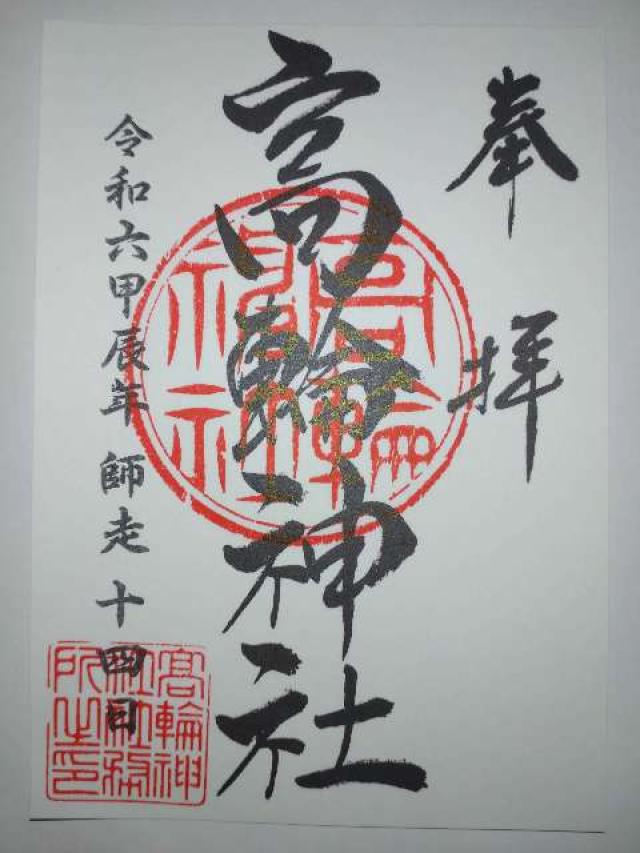 奉拝
高輪神社
令和六甲辰年 師走 十四日
高輪神社
高輪神社社務所之印